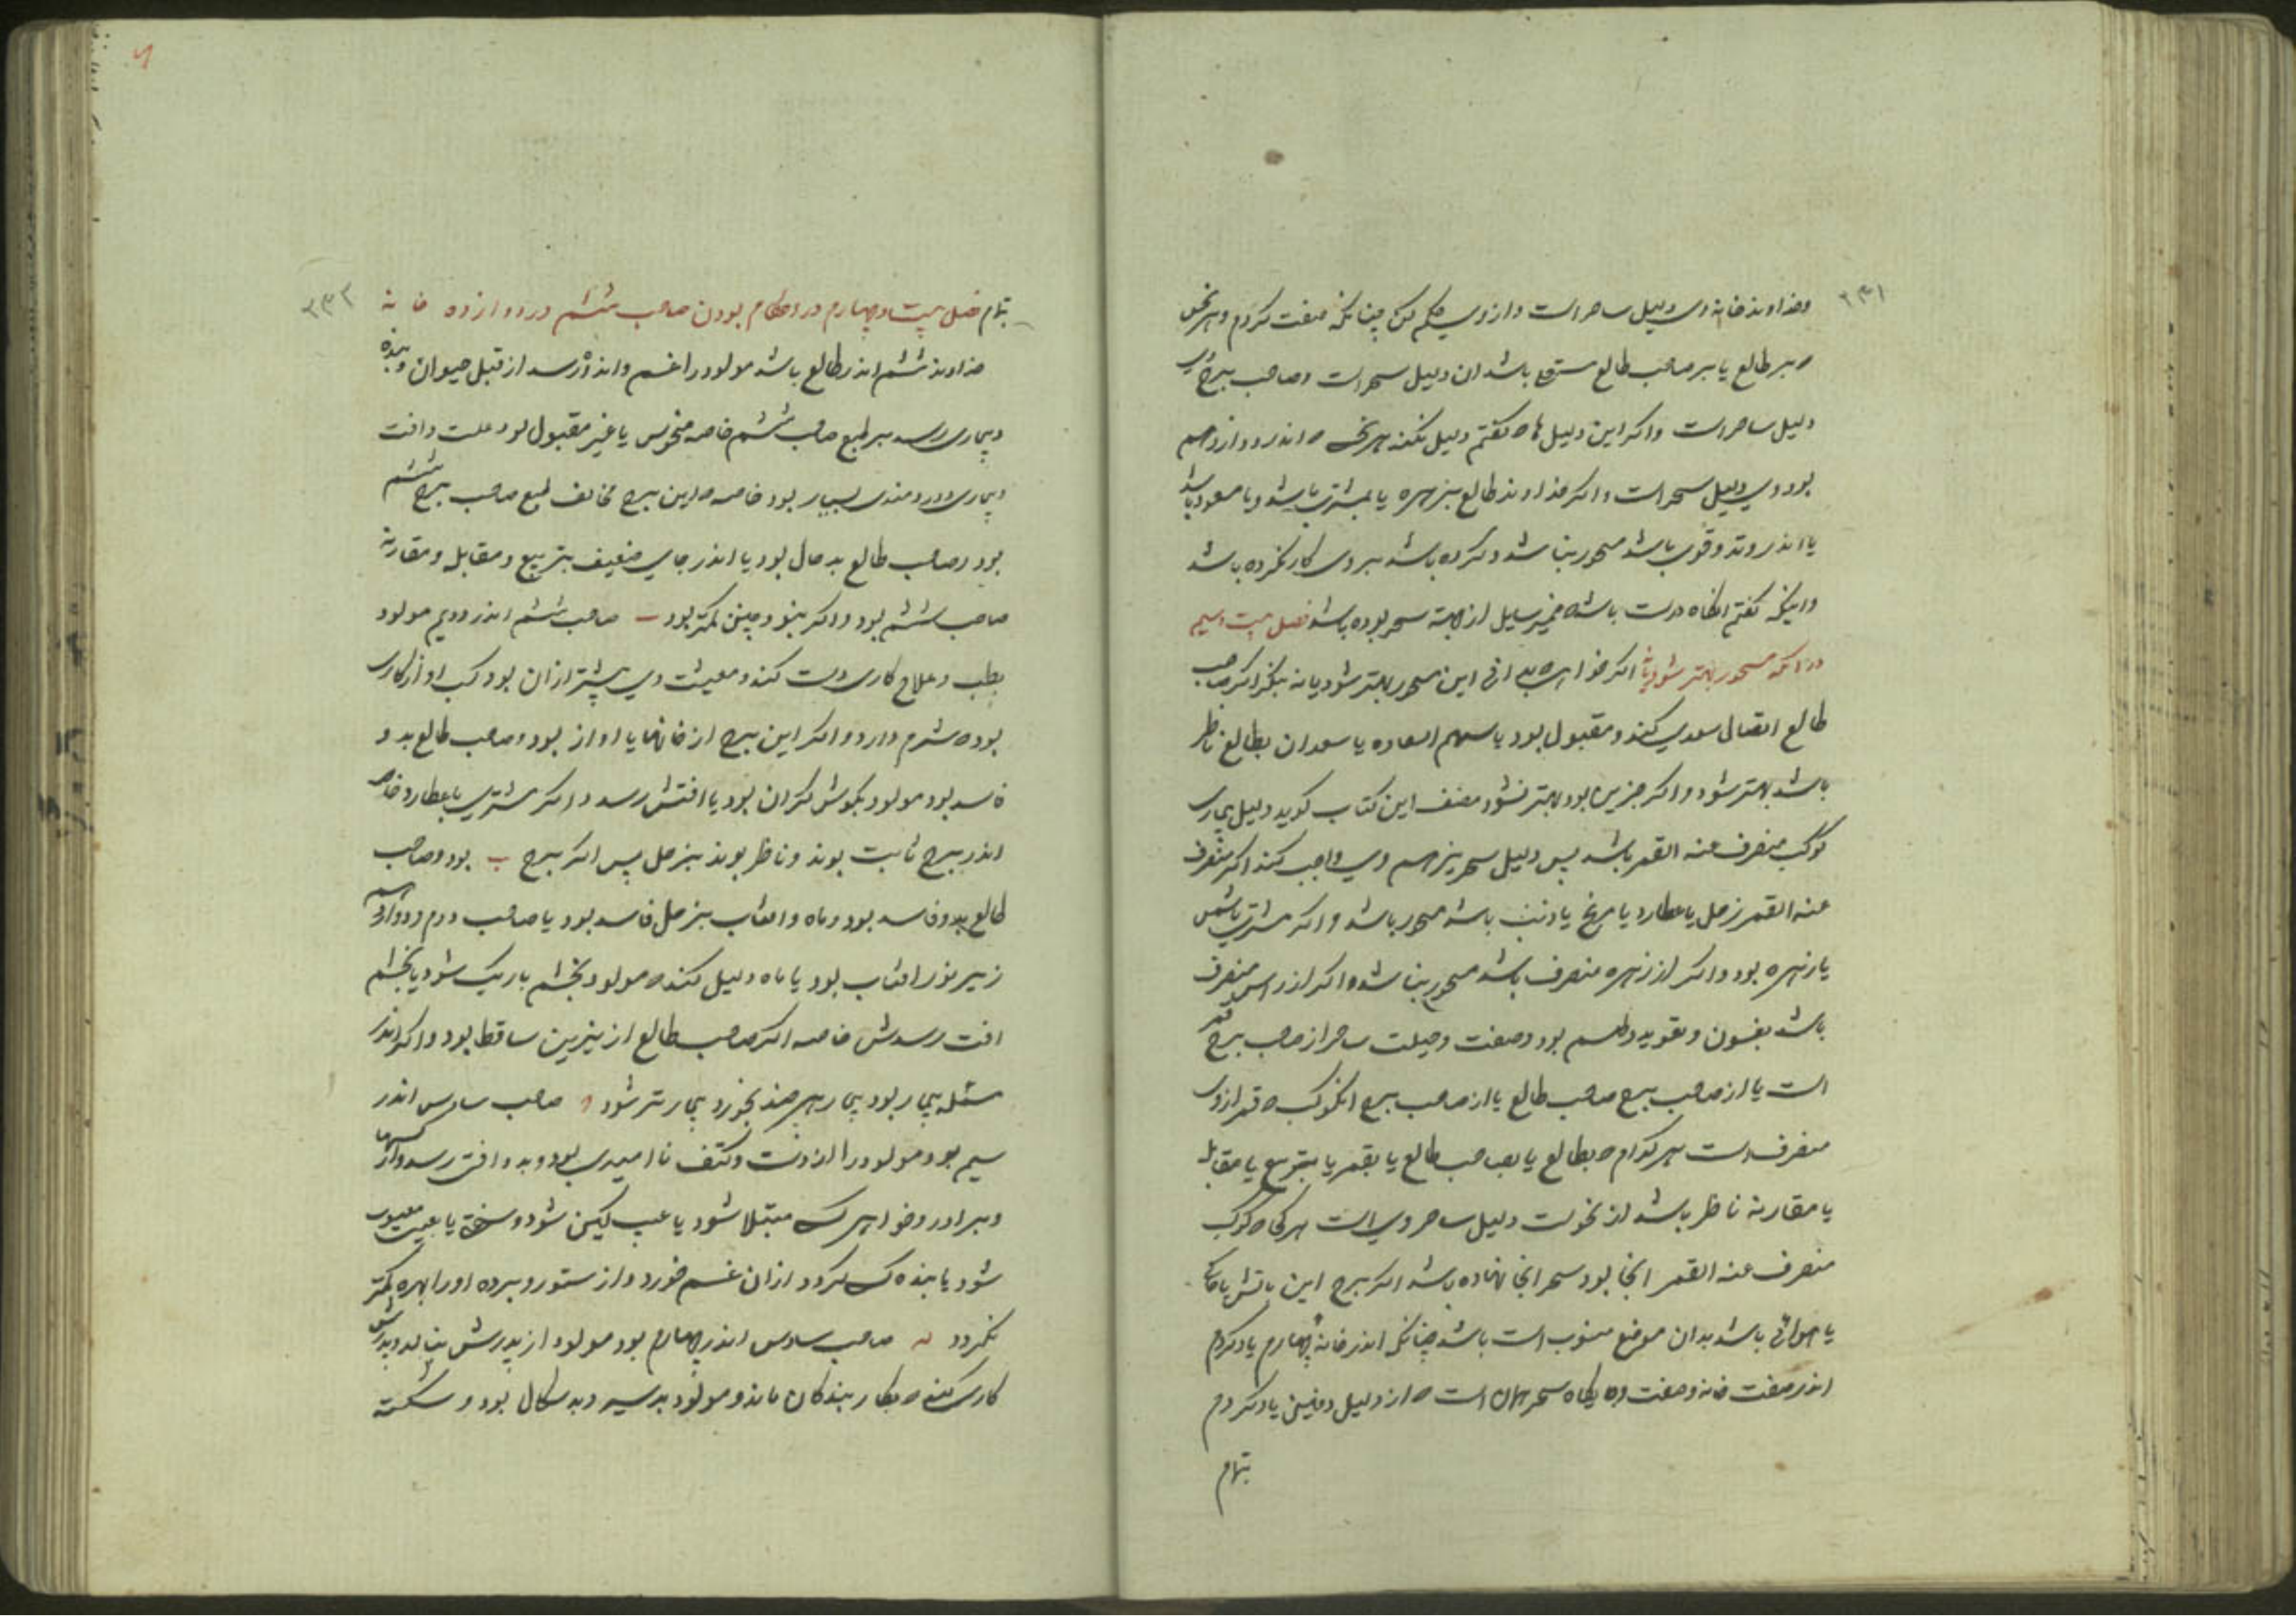 ۲۳۱
وخداوند خانه وی دلیل ساحر است و از وی حکم کن چنانکه صفت کردم و هر نحس
که بر طالع یا بر صاحب طالع مستولی باشد ان دلیل سحر است و صاحب برج وی
دلیل ساحر است و اکر این دلیل ها که کفتم دلیل نکند هر نحس که اندر دوازدهم
بود وی دلیل سحر است و اکر خداوند طالع بزهره یا بمشتری باشد و یا مسعود باشد
یا اندر وتد و قوی باشد مسحور نباشد و کرده باشد بر وی کار نکرده باشد
و اینکه کفتم انکاه درست باشد که ضمیر سایل از جهة سحر بوده باشد فصل بیست وسیم
در انکه مسحور بهتر شود یا نه اکر خواهی که بدانی این مسحور بهتر شود یا نه بنکر اکر صاحب
طالع اتصال سعدی کند و مقبول بود یا سهم السعاده یا سعدان بطالع ناظر
باشد بهتر شود و اکر جز این بود بهتر نشود مصنف این کتاب کوید دلیل بیماری
کوکب منصرف عنه القمر باشد پس دلیل سحر نیز هم وی واجب کند اکر منصرف
عنه القمر زحل یا عطارد یا مریخ یا ذنب باشد مسحور باشد و اکر مشتری یا شمس
یا زهره بود و اکر از زهره منصرف باشد مسحور نباشد و اکر از راس منصرف
باشد بفسون و تعوید و طلسم بود و صفت و حیلت ساحر از صاحب برج قمر
است یا از صاحب برج صاحب طالع یا از صاحب برج انکوکب که قمر از وی
منصرف است هر کدام که بطالع یا بصاحب طالع یا بقمر یا بتربیع یا مقابله
یا مقارنه ناظر باشد از نحوست دلیل ساحر وی است هر کجا که کوکب
منصرف عنه القمر انجا بود سحر انجا نهاده باشد اکر برج این باتش یا خاکی
یا هوائی باشد بدان موضع منسوب است باشد چنانکه اندر خانه چهارم یاد کردم
اندر صفت خانه و صفت جایکاه سحر همان است که از دلیل دفین یاد کردم
بتهام
۲۳۲
بتهام فصل بیست و چهارم در احکام بودن صاحب ششم در دوازده خانه
خداوند ششم اندر طالع باشد مولود را غم و اندوه رسد از قبل حیوان و بنده
و بیماری رسد بر طبع صاحب ششم خاصه منحوس یا غیر مقبول بود علت و افت
و بیماری و دردمندی بسیار بود خاصه که این برج مخالف طبع صاحب برج ششم
بود و صاحب طالع بد حال بود یا اندر جای ضعیف بتربیع و مقابله و مقارنه
صاحب ششم بود و اکر بنود چنین کمتر بود صاحب ششم اندر دویم مولود
بطب و علاج کاری دست کند و معیشت وی بیشتر از ان بود کسب او از کاری
بود که شرم دارد و اکر این برج از خانها یا اواز بود و صاحب طالع بد و
فاسد بود مولود بکوش کران بود یا افتش رسد و اکر مشتری با عطارد خاصه
اندر برج ثابت بوند و ناظر بوند بزحل پس اکر برج بود و صاحب
طالع بد و فاسد بود و ماه و افتاب بزحل فاسد بود یا صاحب دوم و دوازدهم
زیر نور افتاب بود یا ماه دلیل کند که مولود بچشم باریک شود یا بچشم
افت رسدش خاصه اکر صاحب طالع از نیرین ساقط بود و اکر اندر
مسئله بیمار بود بیمار هر چند بخورد بیمارتر شود صاحب سادس اندر
سیم بود مولود را از دست و کتف نا امیدی بود و بدو افتی رسد و از
و برادر و خواهرک مبتلا شود یا عیب کین شود و سختی یا عیب معیوب
شود یا بنده کسی کردد از ان غم خورد و از ستور و برده او را بهره کمتر
نکردد صاحب سادس اندر چهارم بود مولود از پدرش بنالد و پدرش
کاری کند که بکار بندکان ماند و مولود بدسیر و بد سکال بود و شکسته